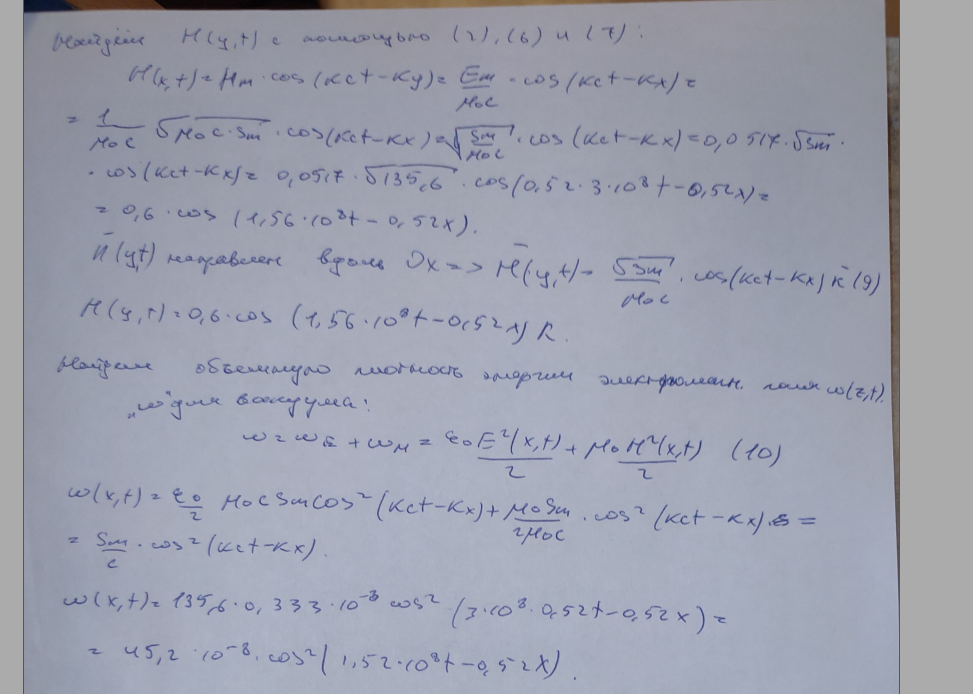 Найдём H(y,t) с помощью (2),(6) и (7):
H(x,t)=Hm·cos(kct-ky)=Em/μ₀c·cos(kct-kx)=
=1/μ₀c √μ₀c·Sm·cos(kct-kx)=√Sm/μ₀c·cos(kct-kx)=0,0517·√Sm·
·cos(kct-kx)=0,0517·√135,6·cos(0,52·3·10⁸t-0,52x)=
=0,6·cos(1,56·10⁸t-0,52x).
H̄(y,t) направлен вдоль Ox=>H̄(y,t)=√Sm/μ₀c·cos(kct-kx)k̄(9)
H(y,t)=0,6·cos(1,56·10⁸t-0,52x)k.
Найдем объемную плотность энергии электромагн. поля w(z,t).
„w" для вакуума:
w=wE+wM=ε₀E²(x,t)/2+μ₀H²(x,t)/2 (10)
w(x,t)=ε₀/2 μ₀cSmcos²(kct-kx)+μ₀Sm/2μ₀c·cos²(kct-kx)=
=Sm/c·cos²(kct-kx).
w(x,t)=135,6·0,333·10⁻⁸cos²(3·10⁸·0,52t-0,52x)=
=45,2·10⁻⁸·cos²(1,52·10⁸t-0,52x).